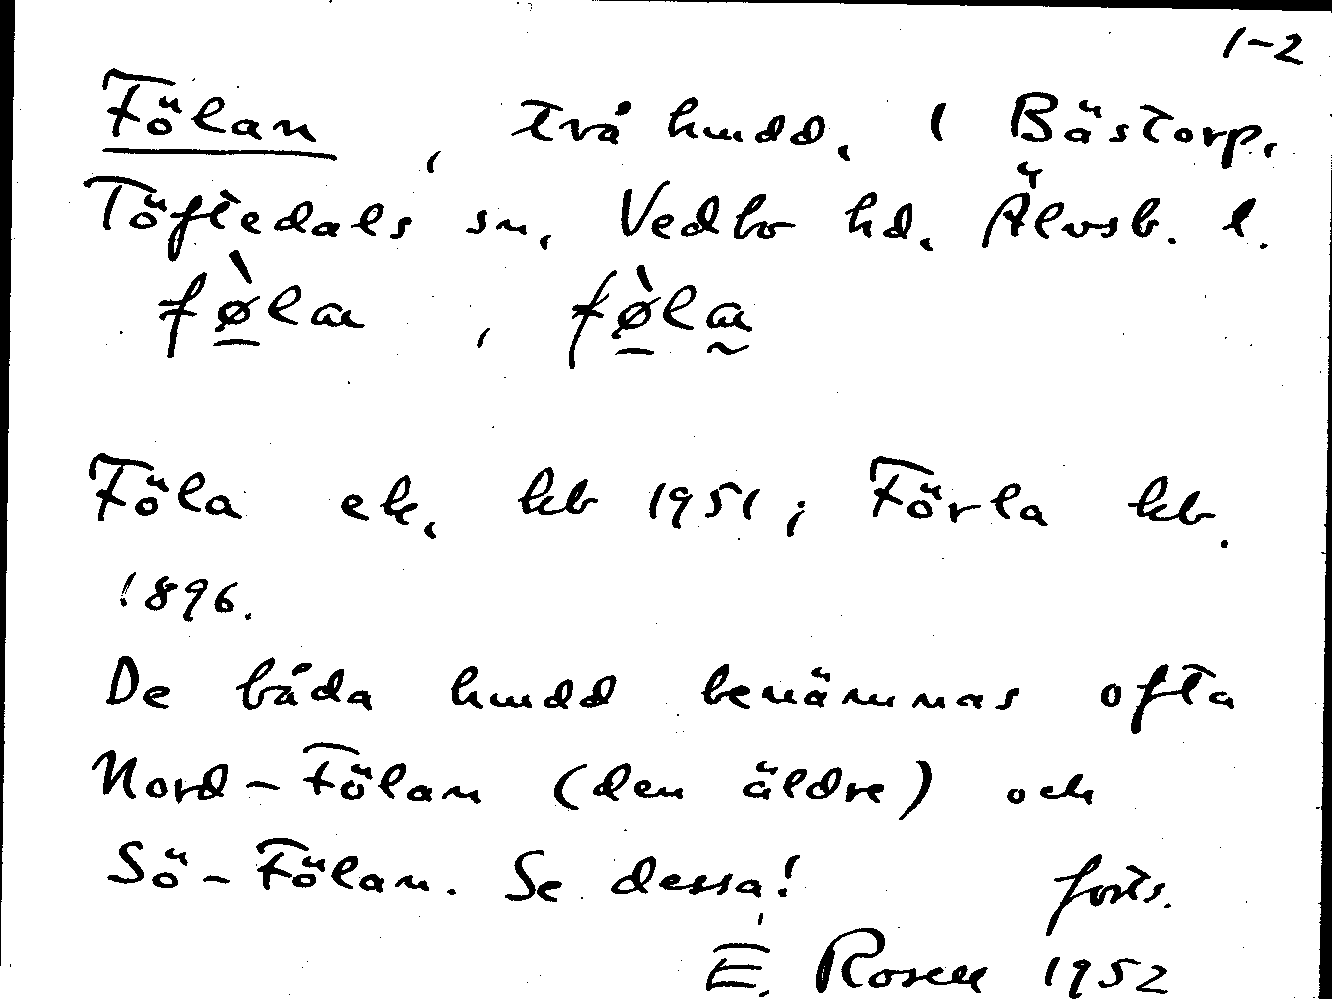 1-2
Fölan, två hmdd. i Bästorp.
Töftedals sn, Vedbo hd. Älvsb. l.
fø̀la, fø̀la
Föla ek. kb 1951; Förla kb.
1896.
De båda hmdd benämnas ofta
Nord-Fölan (den äldre) och
Sö-Fölan. Se dessa!
forts.
E. Rosell 1952